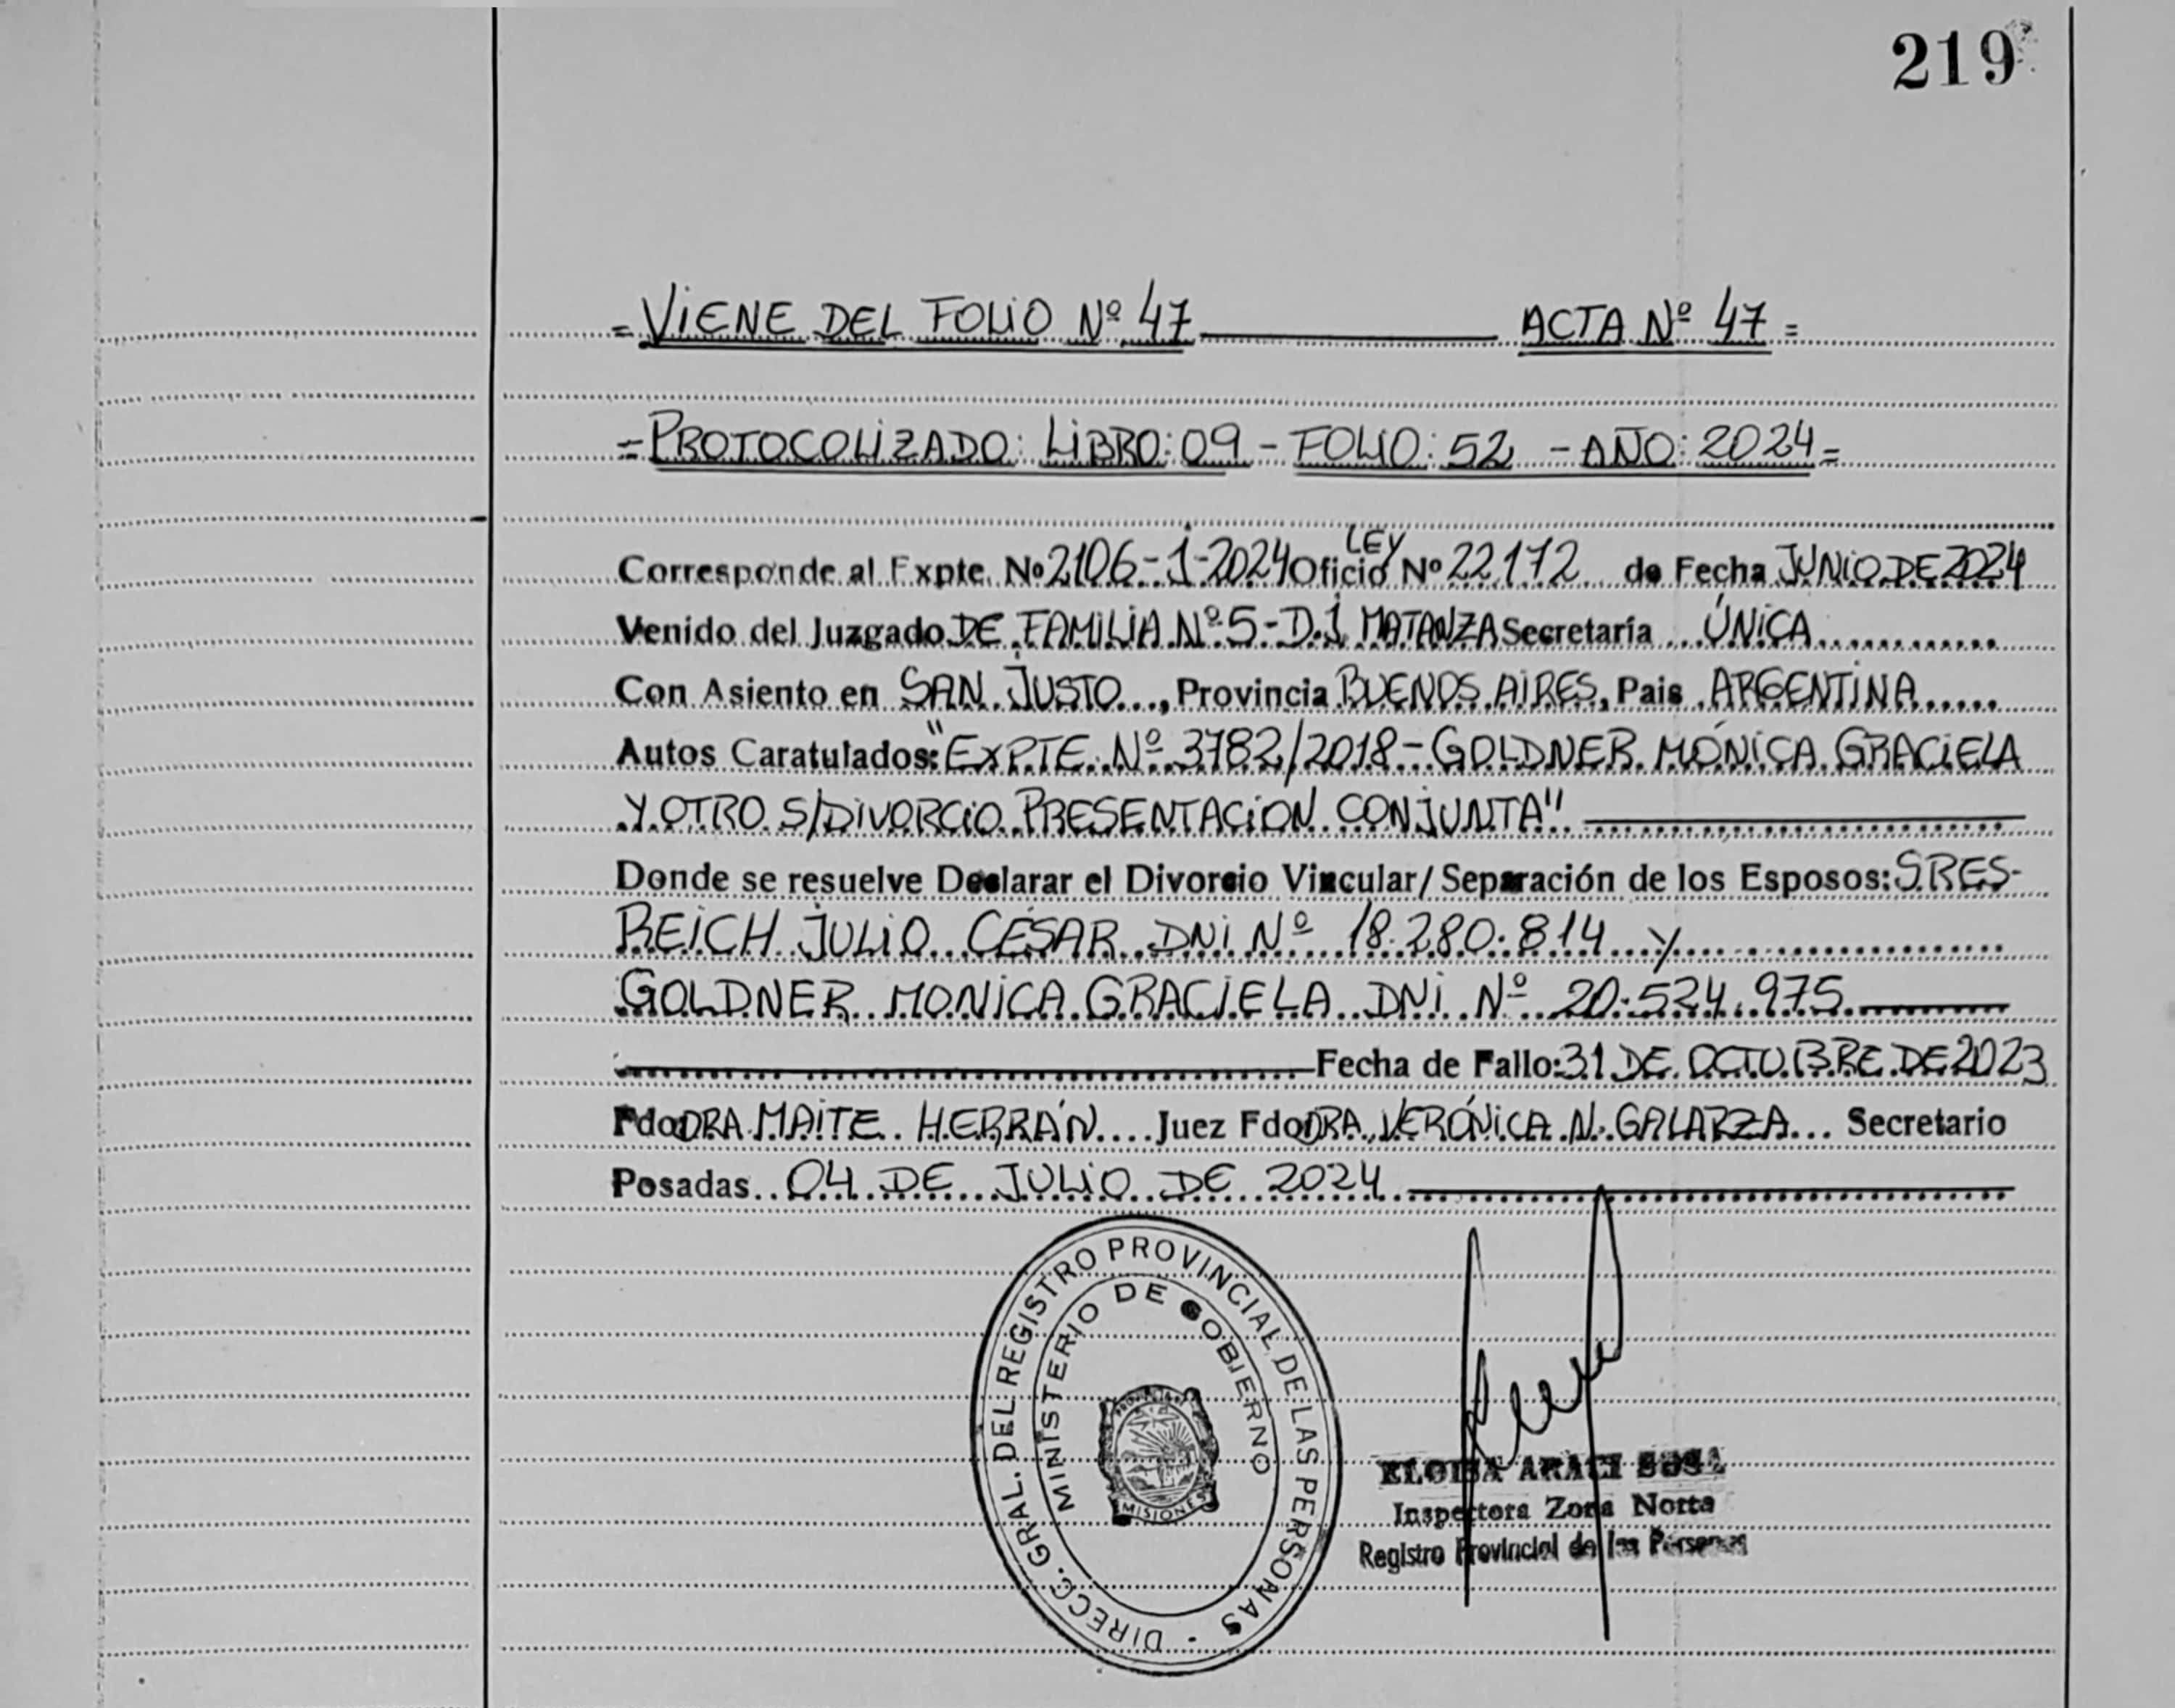 219
=VIENE DEL FOLIO Nº 47 ACTA Nº 47=
=PROTOCOLIZADO: LIBRO: 09 - FOLIO: 52 - AÑO: 2024=
LEY
Corresponde al Expte. Nº 2106-1-2024 Oficio Nº 22.172 de Fecha JUNIO DE 2024
Venido del Juzgado DE FAMILIA Nº 5 - D.J MATANZA Secretaría ÚNICA
Con Asiento en SAN JUSTO, Provincia BUENOS AIRES, Pais ARGENTINA
Autos Caratulados: "EXPTE. Nº 3782/2018 - GOLDNER MÓNICA GRACIELA
Y OTRO S/DIVORCIO PRESENTACION CONJUNTA"
Donde se resuelve Declarar el Divorcio Vincular/Separación de los Esposos: SRES-
REICH JULIO CESAR DNI Nº 18.280.814 y
GOLDNER MONICA GRACIELA DNI Nº 20.524.975
Fecha de Fallo: 31 DE OCTUBRE DE 2023
Fdo DRA MAITE HERRÁN Juez Fdo DRA VERÓNICA N. GALARZA Secretario
Posadas 04 DE JULIO DE 2024
DIRECC. GRAL. DEL REGISTRO PROVINCIAL DE LAS PERSONAS -
MINISTERIO DE GOBIERNO
MISIONES
ELOISA ARACI SOSA
Inspectora Zona Norte
Registro Provincial de las Personas